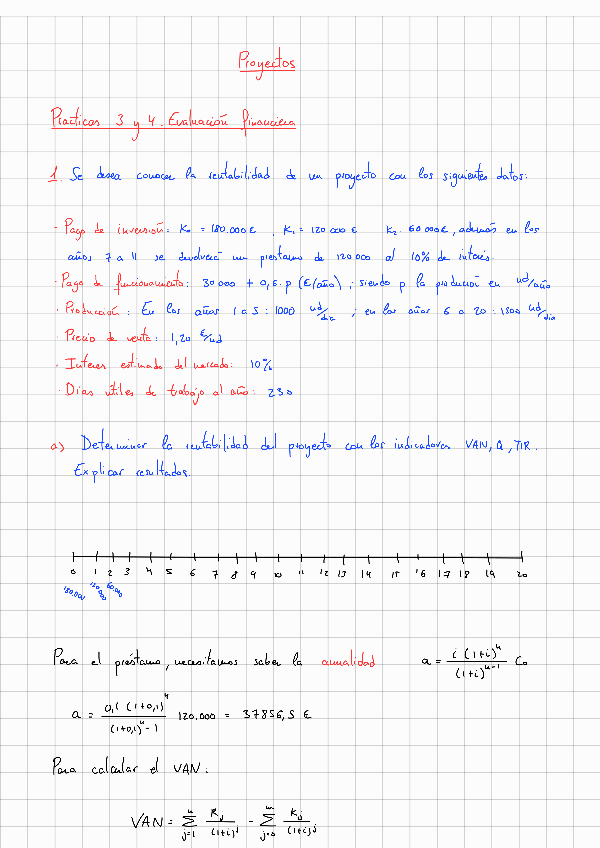 Proyectos
Practicas 3 y 4. Evaluación financiera
1. Se desea conocer la rentabilidad de un proyecto con los siguientes datos:
· Pago de inversión: K₀ = 180.000 €, K₁ = 120 000 € K₂ 60.000 €, además en los
años 7 a 11 se devolverá un préstamo de 120 000 al 10% de interés.
· Pago de funcionamiento: 30 000 + 0,6. p (€/año) ; siendo p la producción en ud/año
· Producción: En los años 1 a 5 : 1000 ud/dia ; en los años 6 a 20 : 1500 ud/dia
· Precio de venta: 1,20 €/ud
· Interes estimado del mercado: 10%
· Dias utiles de trabajo al año: 230
a) Determinar la rentabilidad del proyecto con los indicadores VAN, Q, TIR.
Explicar resultados.
0 1 2 3 4 5 6 7 8 9 10 11 12 13 14 15 16 17 18 19 20
180.000 120.000 60.000
Para el préstamo, necesitamos saber la anualidad a = i (1+i)ⁿ / (1+i)ⁿ⁻¹ C₀
a = 0,1 (1+0,1)⁴ / (1+0,1)⁴ - 1 120.000 = 37856,5 €
Para calcular el VAN:
VAN = Σ j=1 n Rj / (1+i)^j - Σ j=0 m Kj / (1+i)^j